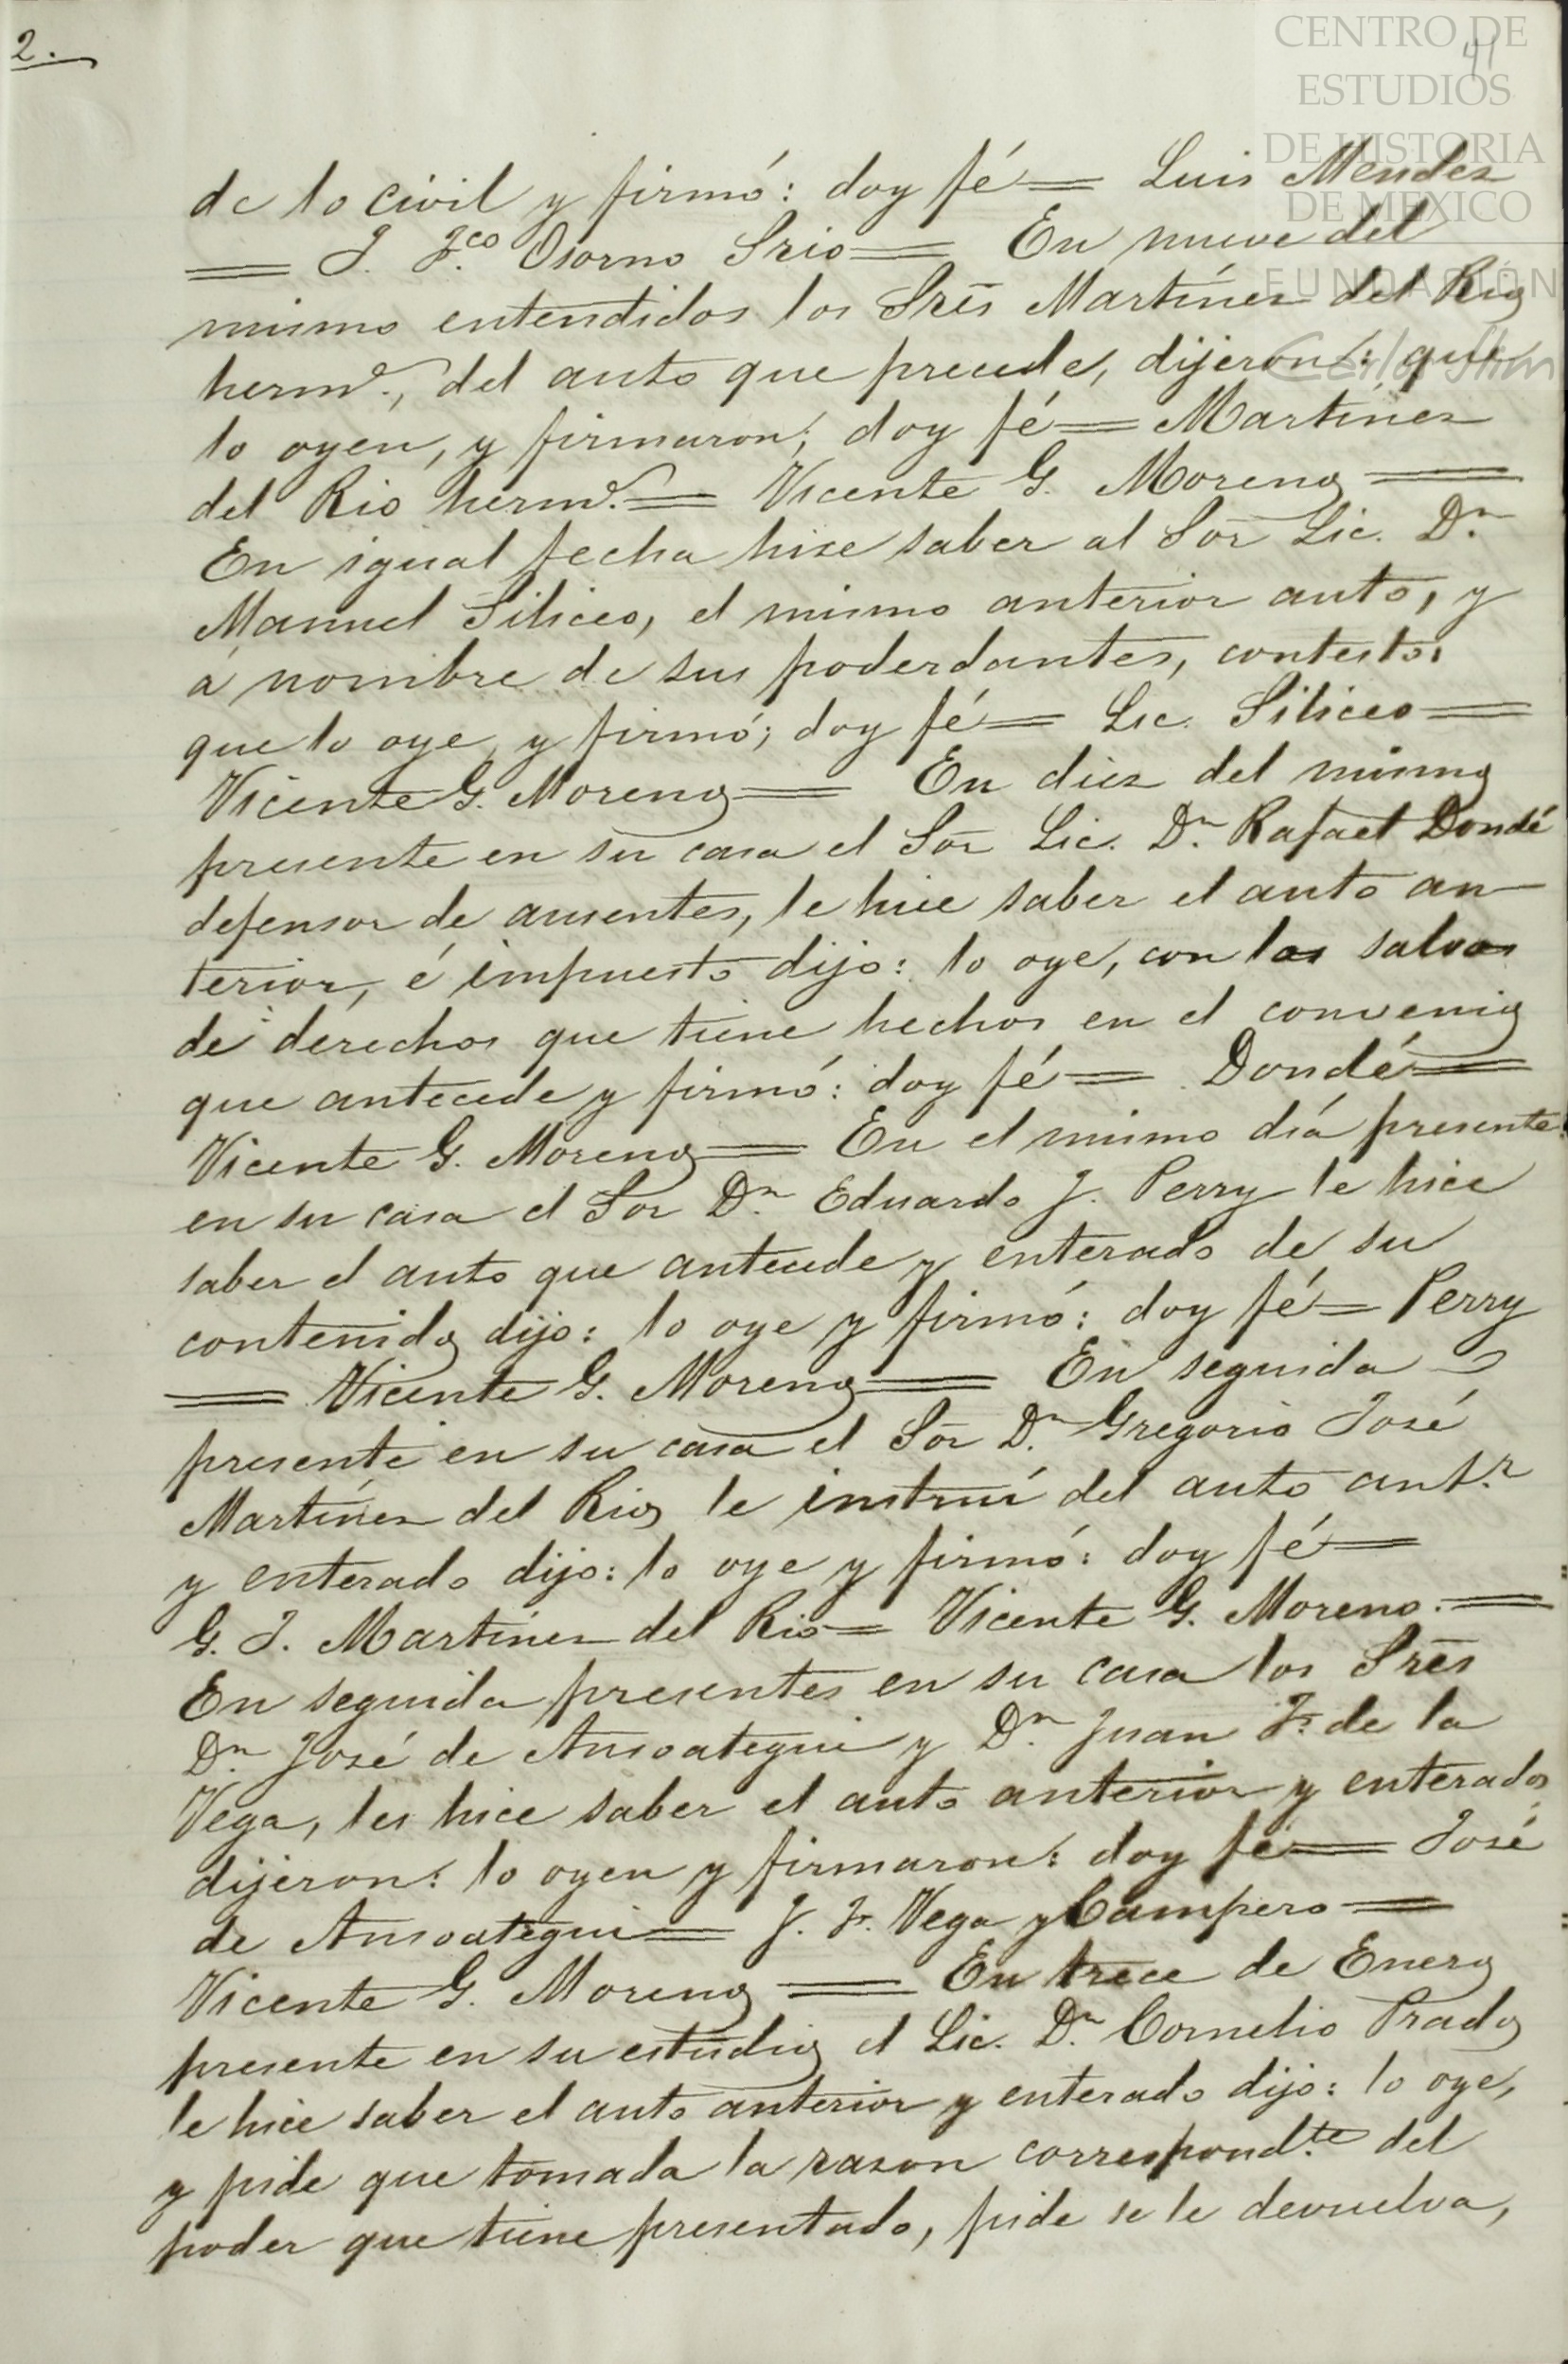 2.
41
CENTRO DE
ESTUDIOS
DE HISTORIA
DE MEXICO
FUNDACIÓN
Carlos Slim
de lo civil y firmó: doy fé= Luis Mendez
= J. Fco. Osorno Srio= En nueve del
mismo entendidos los Sres Martínez del Rio
hermo., del auto que precede, dijeron: que
lo oyen, y firmaron; doy fé= Martínez
del Rio hermo.= Vicente G. Moreno=
En igual fecha hice saber al Sor Lic. Dn.
Manuel Siliceo, el mismo anterior auto, y
á nombre de sus poderdantes, contestó:
que lo oye, y firmó; doy fé= Lic. Siliceo=
Vicente G. Moreno= En diez del mismo
presente en su casa el Sor Lic. Dn. Rafael Dondé
defensor de ausentes, le hice saber el auto an-
terior, é impuesto dijo: lo oye, con las salvas
de derechos que tiene hechos en el convenio
que antecede y firmó: doy fé= Dondé=
Vicente G. Moreno= En el mismo día presente
en su casa el Sor Dn. Eduardo J. Perry le hice
saber el auto que antecede y enterado de su
contenido dijo: lo oye y firmó: doy fé= Perry
= Vicente G. Moreno= En seguida
presente en su casa el Sor Dn. Gregorio José
Martínez del Rio, le instruí del auto antr.
y enterado dijo: lo oye y firmó: doy fé=
G. J. Martínez del Rio= Vicente G. Moreno.=
En seguida presentes en su casa los Sres
Dn. José de Ansoategui y Dn. Juan F. de la
Vega, les hice saber el auto anterior y enterados
dijeron: lo oyen y firmaron: doy fé= José
de Ansoategui= J. F. Vega y Campero=
Vicente G. Moreno= En trece de Enero
presente en su estudio el Lic. Dn. Cornelio Prado
le hice saber el auto anterior y enterado dijo: lo oye,
y pide que tomada la razon correspondte. del
poder que tiene presentado, pide se le devuelva,